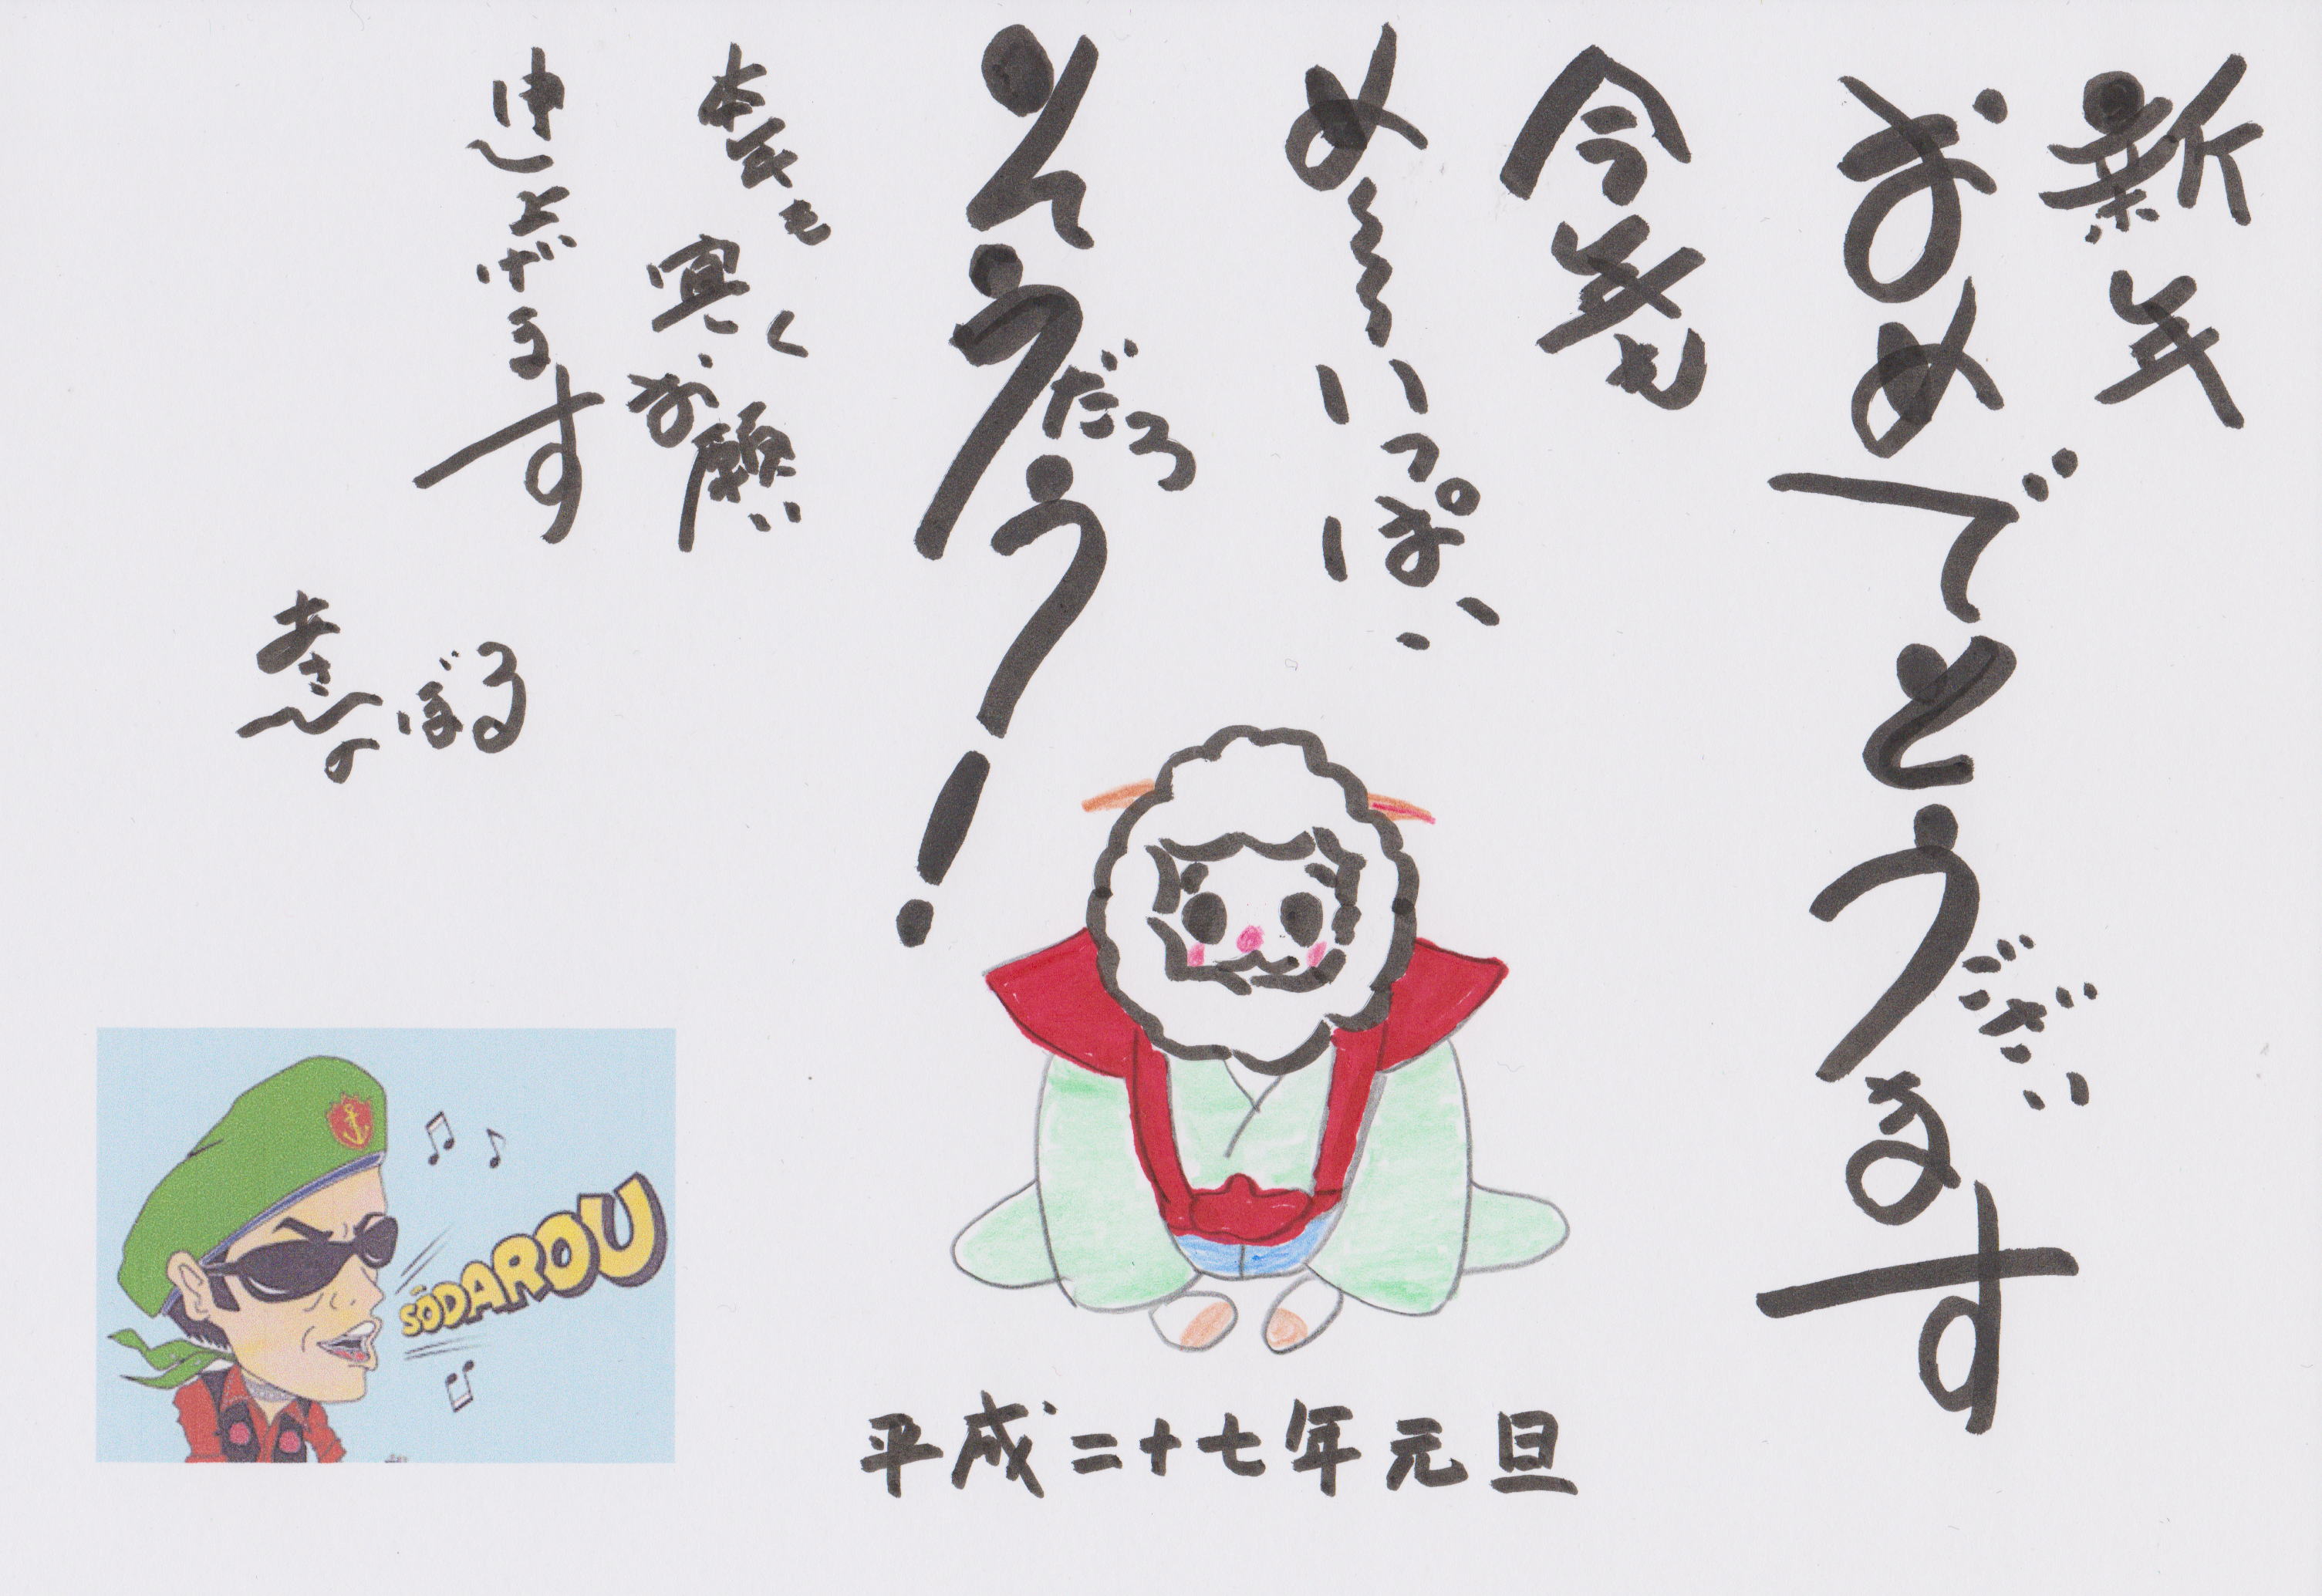 新年
おめでとうございます
今年も
め~~いっぱい
そうだろう!
本年も宜しくお願い
申し上げます
あさひのぼる
平成二十七年元旦
SODAROU